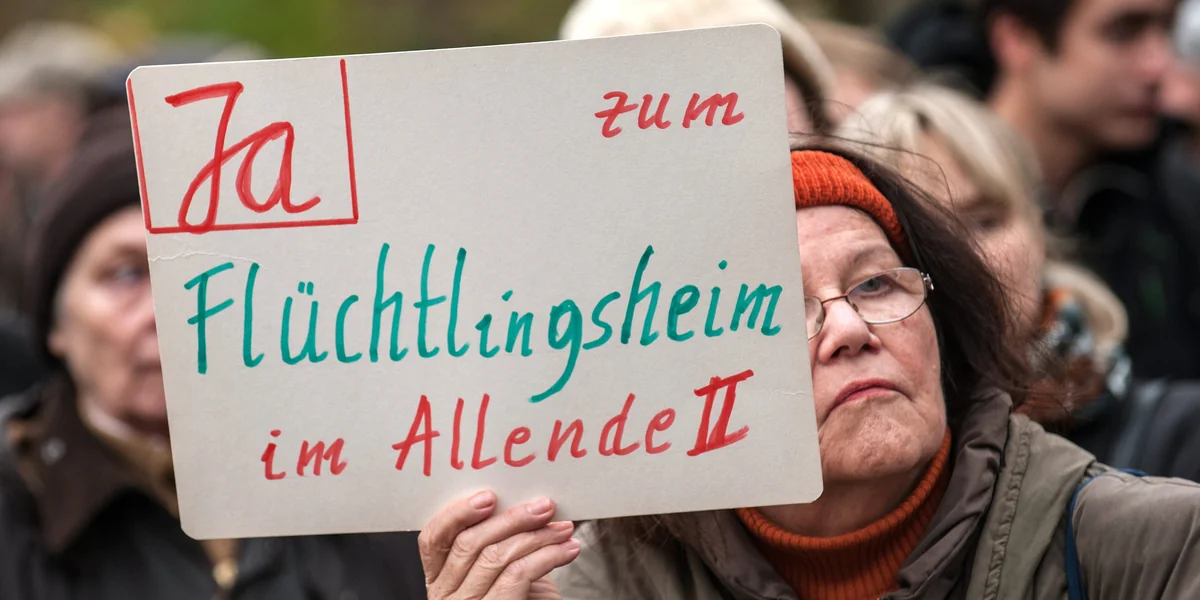 Ja zum
Flüchtlingsheim
im Allende II